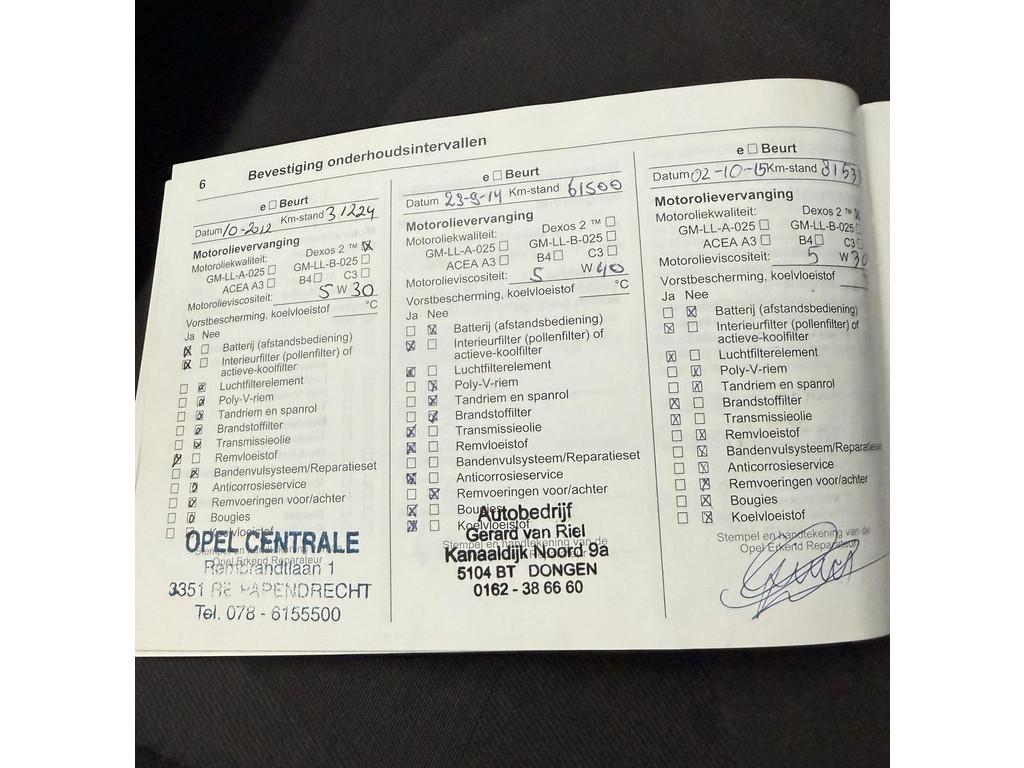 6 Bevestiging onderhoudsintervallen
e ☐ Beurt
Datum 10-2012 Km-stand 31224
Motorolievervanging
Motoroliekwaliteit: Dexos 2 ™ ☒
GM-LL-A-025 ☐ GM-LL-B-025 ☐
ACEA A3 ☐ B4 ☐ C3 ☐
Motorolieviscositeit: 5 W 30
Vorstbescherming, koelvloeistof °C
Ja Nee
☒ ☐ Batterij (afstandsbediening)
☒ ☐ Interieurfilter (pollenfilter) of
actieve-koolfilter
☐ ☒ Luchtfilterelement
☐ ☒ Poly-V-riem
☐ ☒ Tandriem en spanrol
☐ ☒ Brandstoffilter
☐ ☒ Transmissieolie
☒ ☐ Remvloeistof
☐ ☒ Bandenvulsysteem/Reparatieset
☐ ☒ Anticorrosieservice
☐ ☒ Remvoeringen voor/achter
☐ ☒ Bougies
Koelvloeistof
OPEL CENTRALE
Stempel en handtekening van de
Opel Erkend Reparateur
Rembrandtlaan 1
3351 RE PAPENDRECHT
Tel. 078 - 6155500
e ☐ Beurt
Datum 23-9-14 Km-stand 61500
Motorolievervanging
Motoroliekwaliteit: Dexos 2 ™ ☐
GM-LL-A-025 ☐ GM-LL-B-025 ☐
ACEA A3 ☐ B4 ☐ C3 ☐
Motorolieviscositeit: 5 W 40
Vorstbescherming, koelvloeistof °C
Ja Nee
☐ ☒ Batterij (afstandsbediening)
☒ ☐ Interieurfilter (pollenfilter) of
actieve-koolfilter
☒ ☐ Luchtfilterelement
☐ ☒ Poly-V-riem
☐ ☒ Tandriem en spanrol
☐ ☒ Brandstoffilter
☒ ☐ Transmissieolie
☒ ☐ Remvloeistof
☐ ☐ Bandenvulsysteem/Reparatieset
☒ ☐ Anticorrosieservice
☐ ☒ Remvoeringen voor/achter
☒ ☐ Bougies
☒ ☐ Koelvloeistof
Autobedrijf
Gerard van Riel
Stempel en handtekening van de
Kanaaldijk Noord 9a
5104 BT DONGEN
0162 - 38 66 60
e ☐ Beurt
Datum 02-10-15 Km-stand 8153
Motorolievervanging
Motoroliekwaliteit: Dexos 2 ™ ☒
GM-LL-A-025 ☐ GM-LL-B-025
ACEA A3 ☐ B4 ☐ C3
Motorolieviscositeit: 5 W 30
Vorstbescherming, koelvloeistof
Ja Nee
☐ ☒ Batterij (afstandsbediening)
☒ ☐ Interieurfilter (pollenfilter) of
actieve-koolfilter
☒ ☐ Luchtfilterelement
☐ ☒ Poly-V-riem
☐ ☒ Tandriem en spanrol
☒ ☐ Brandstoffilter
☒ ☐ Transmissieolie
☐ ☒ Remvloeistof
☐ ☒ Bandenvulsysteem/Reparatieset
☐ ☒ Anticorrosieservice
☐ ☒ Remvoeringen voor/achter
☐ ☒ Bougies
☐ ☒ Koelvloeistof
Stempel en handtekening van de
Opel Erkend Reparateur